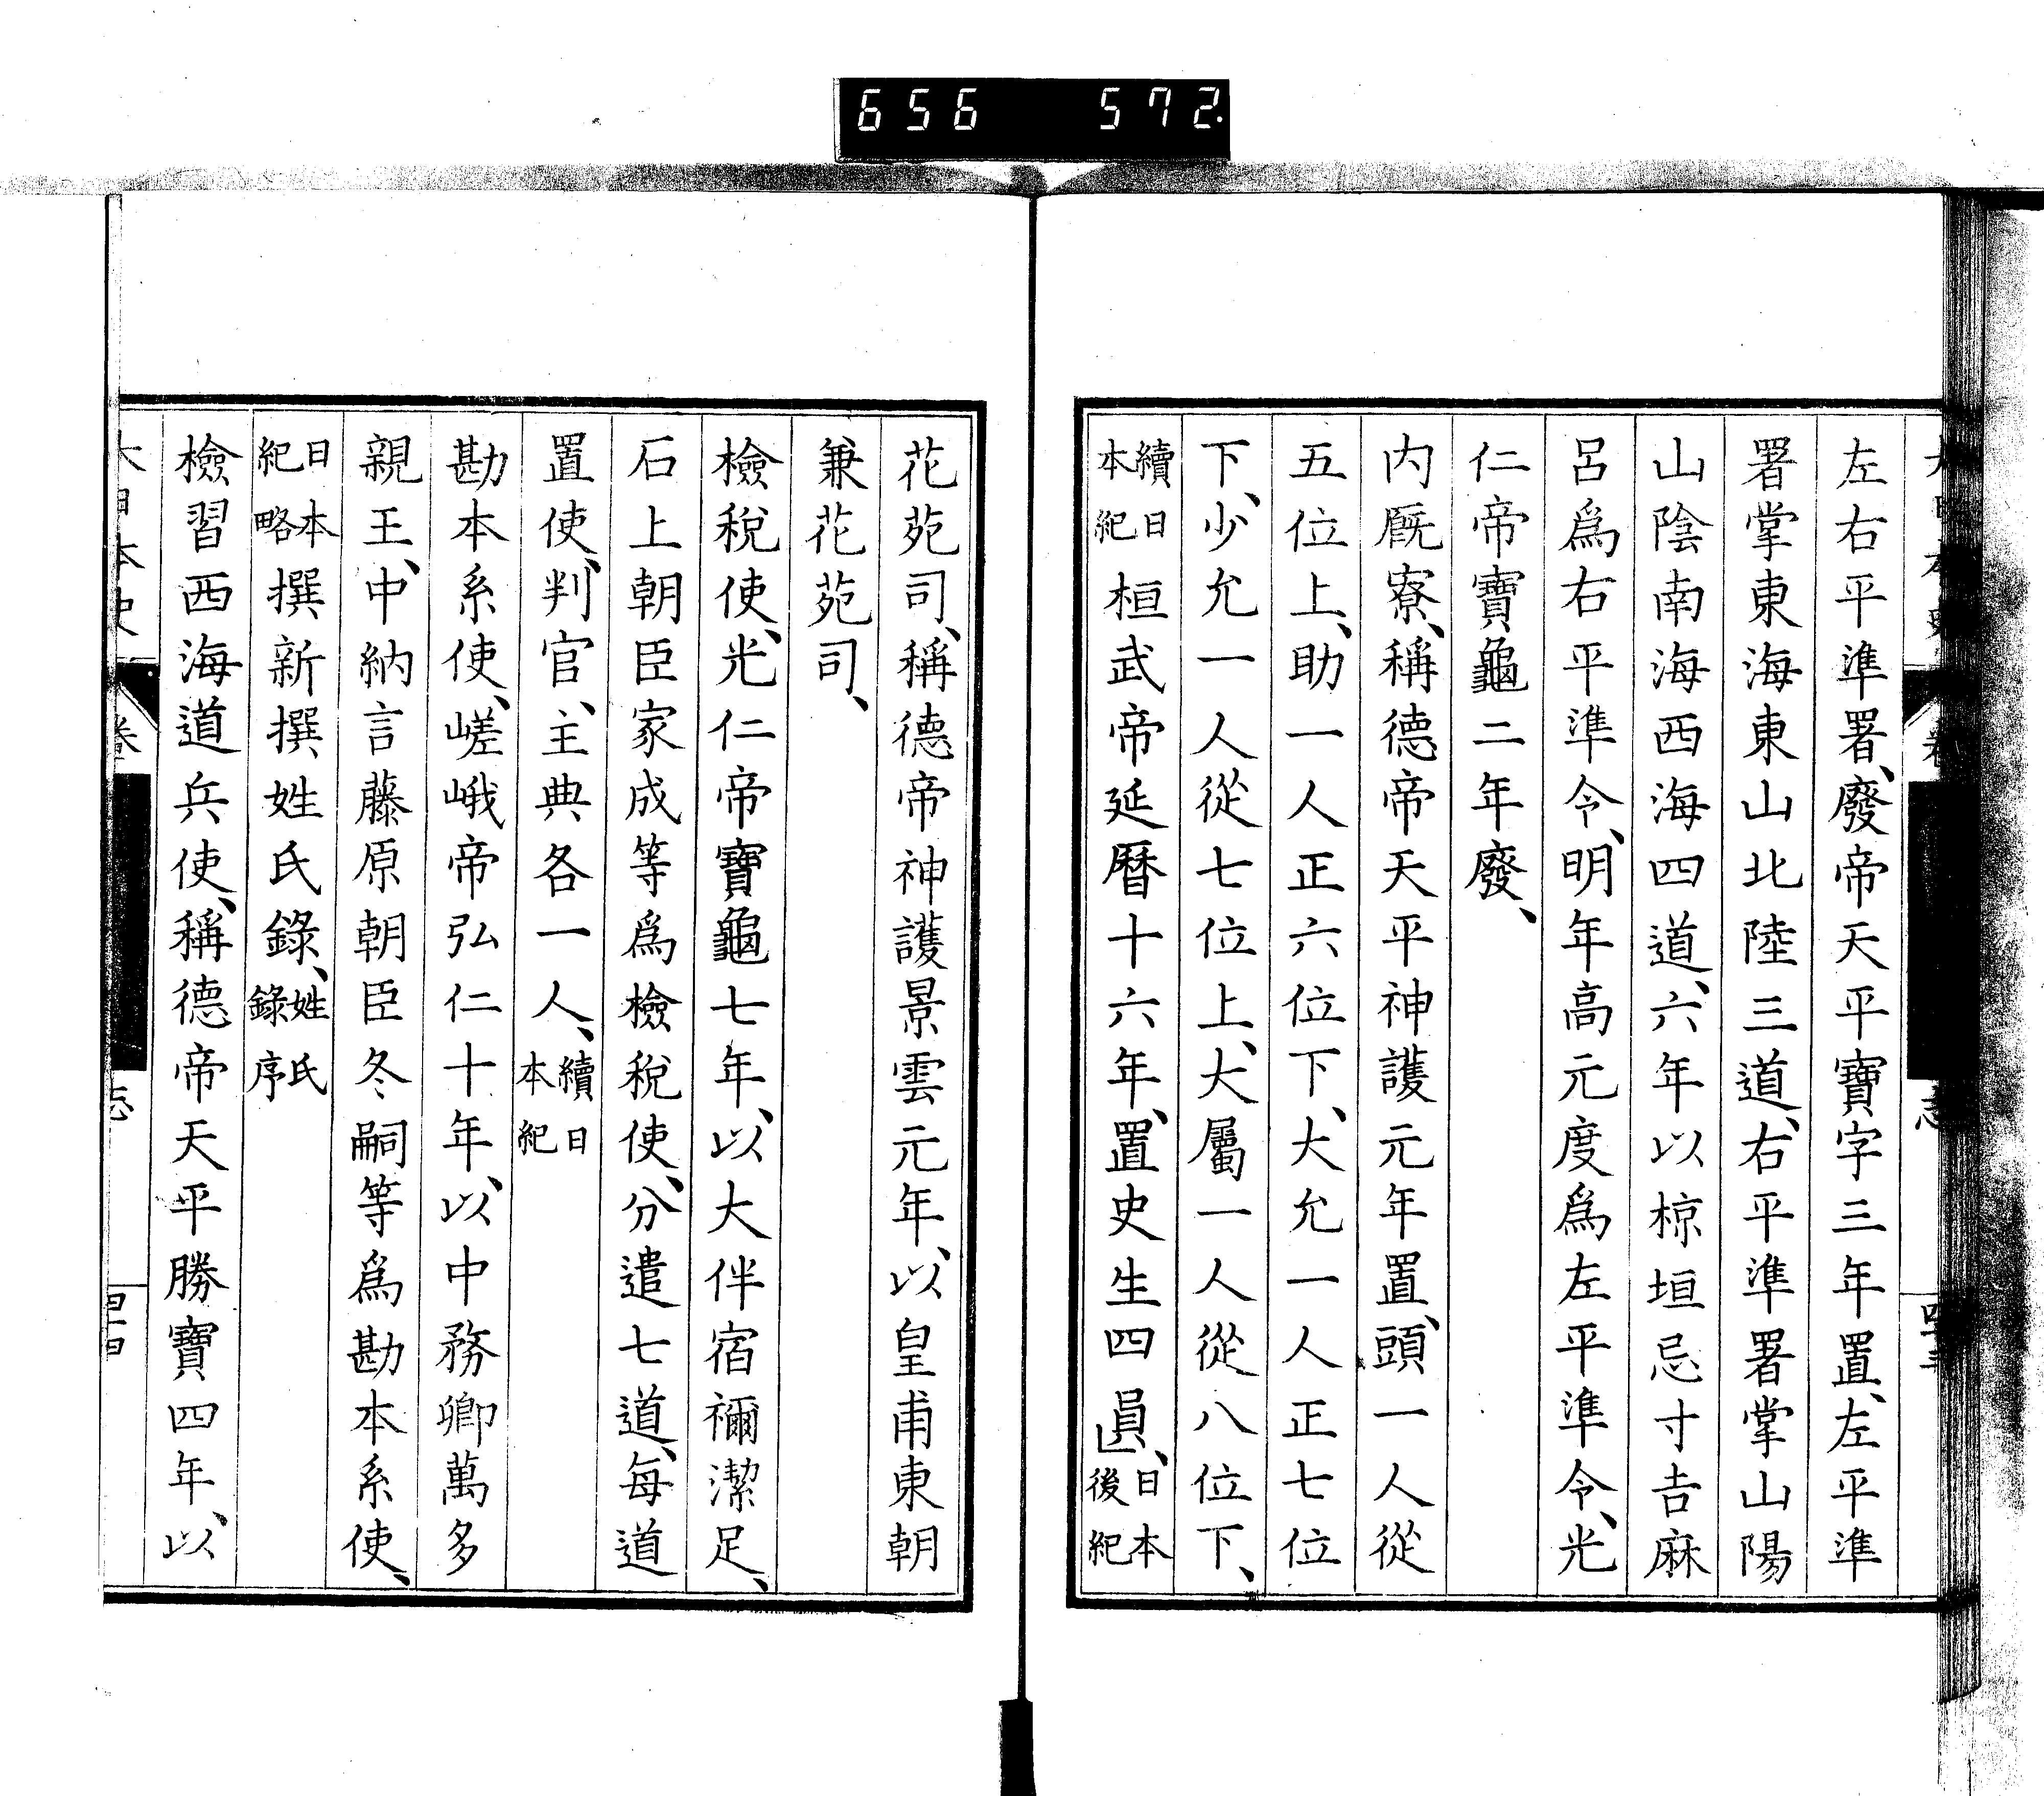 656 572
左右平準署、廢帝天平寶字三年置、左平準
署掌東海東山北陸三道、右平準署掌山陽
山陰南海西海四道、六年以椋垣忌寸吉麻
呂爲右平準令、明年高元度爲左平準令、光
仁帝寶龜二年廢、
内厩寮、稱德帝天平神護元年置、頭一人從
五位上、助一人正六位下、大允一人正七位
下、少允一人從七位上、大屬一人從八位下、
續日本紀桓武帝延曆十六年、置史生四員、日本後紀
花苑司、稱德帝神護景雲元年、以皇甫東朝
兼花苑司、
檢稅使、光仁帝寶龜七年、以大伴宿禰潔足、
石上朝臣家成等爲檢稅使、分遣七道、每道
置使、判官、主典各一人、續日本紀
勘本系使、嵯峨帝弘仁十年、以中務卿萬多
親王、中納言藤原朝臣冬嗣等爲勘本系使、
日本紀略撰新撰姓氏錄、姓氏錄序
檢習西海道兵使、稱德帝天平勝寶四年、以
大日本史 卷 志